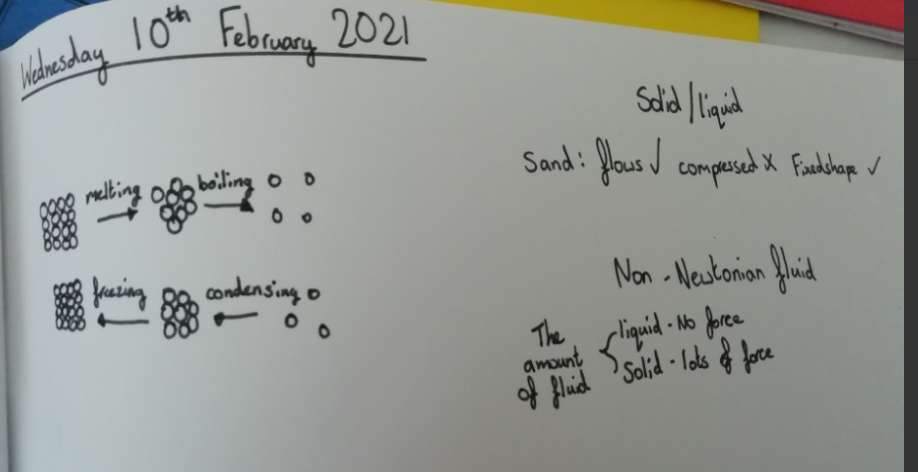 Wednesday 10th February 2021
melting boiling
freezing condensing
Solid/liquid
Sand: flows ✓ compressed X Fixedshape ✓
Non-Newtonian fluid
The amount of fluid
liquid - No force
Solid - lots of force